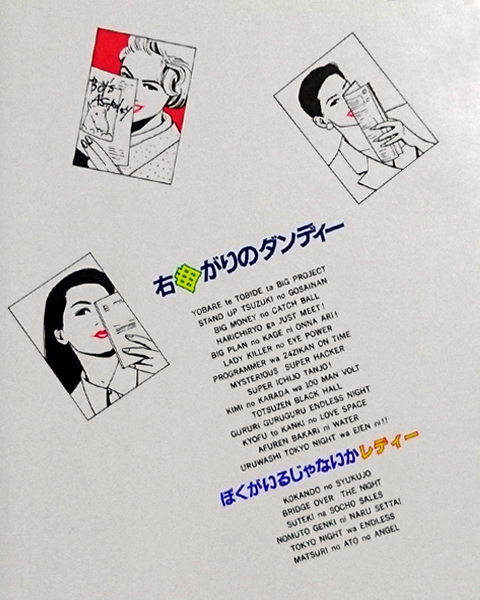 Boy's
右曲がりのダンディー
YOBARE te TOBIDE ta BIG PROJECT
STAND UP TSUZUKI no GOSAINAN
BIG MONEY no CATCH BALL
HARICHIRYO ga JUST MEET!
BIG PLAN no KAGE ni ONNA ARI!
LADY KILLER no EYE POWER
PROGRAMMER wa 24ZIKAN ON TIME
MYSTERIOUS SUPER HACKER
SUPER ICHIJO TANJO!
KIMI no KARADA wa 100 MAN VOLT
TOTSUZEN BLACK HALL
GURURI GURUGURU ENDLESS NIGHT
KYOFU to KANKI no LOVE SPACE
AFUREN BAKARI ni WATER
URUWASHI TOKYO NIGHT wa EIEN ni!!
ぼくがいるじゃないかレディー
KOKANDO no SYUKUJO
BRIDGE OVER THE NIGHT
SUTEKI na SOCHO SALES
NOMUTO GENKI ni NARU SETTAI
TOKYO NIGHT wa ENDLESS
MATSURI no ATO no ANGEL